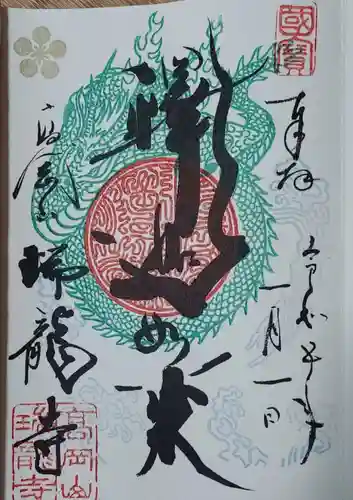 國寶
奉拝
令和 年
一月一日
釋迦如来
高岡山
瑞龍寺
高岡山
瑞龍寺